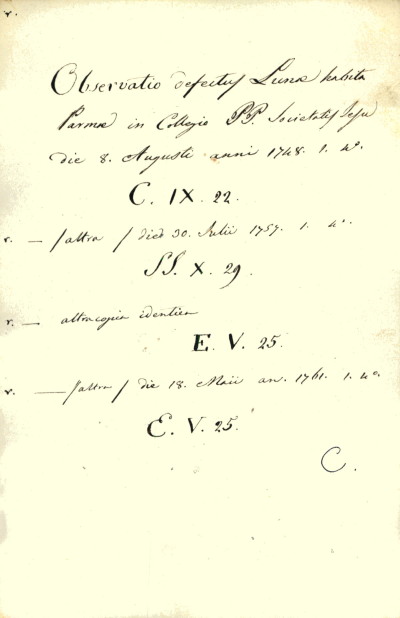 r.
Observatio defectus Lunæ habita
Parmæ in Collegio PP. Societatis Jesu
die 8. Augusti anni 1748. 1. 4°.
C. IX. 22.
r. — /altra/ died 30. Julii 1757. 1. 4°.
SS. X. 29.
r. — altra copia identica
E. V. 25.
r. — /altra/ die 18. Maii an. 1761. 1. 4°.
E. V. 25.
C.